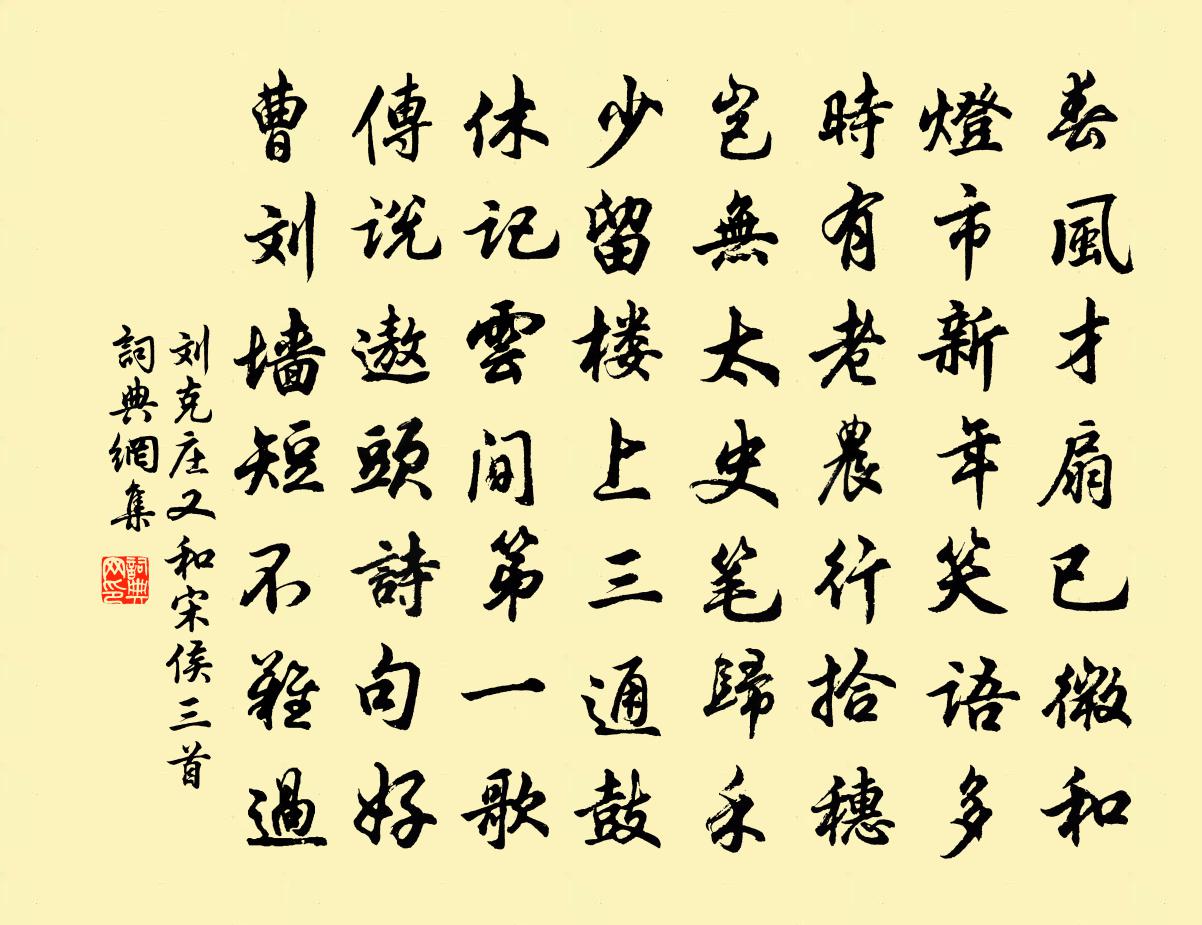 春風才扇已微和
燈市新年笑语多
時有老農行拾穗
豈無太史笔歸禾
少留楼上三通鼓
休记雲间第一歌
傳说遨頭詩句好
曹刘墙短不難過
刘克庄又和宋侯三首
詞典網集
詞典网印